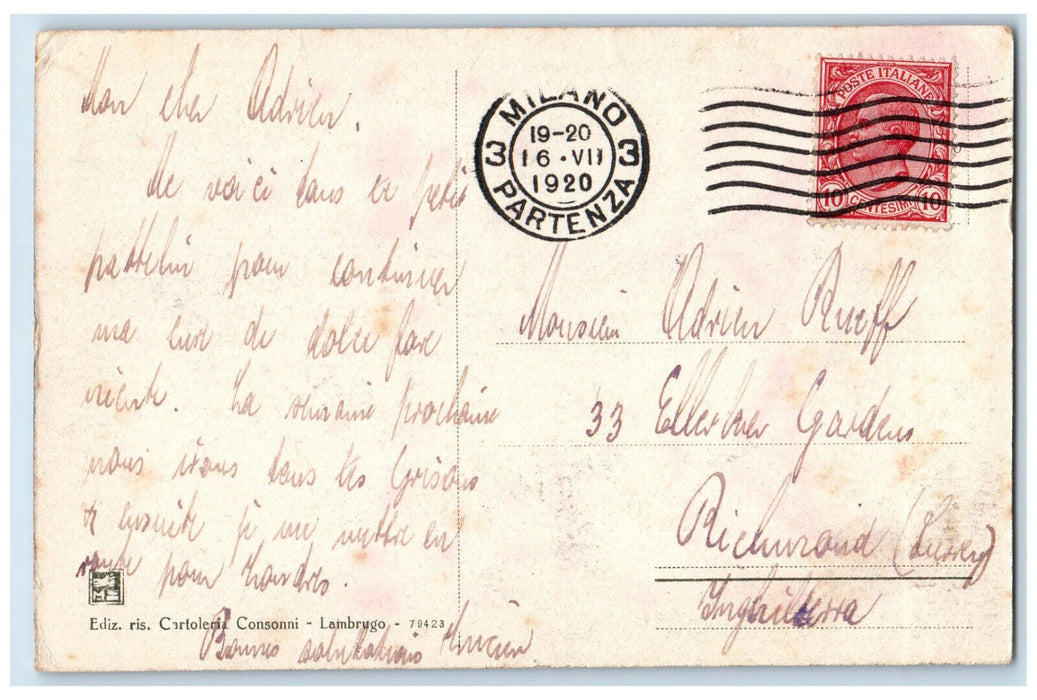 Mon cher Adrien.
Me voici dans ce petit
pattelin pour continuer
ma cure de dolce fare
niente. La semaine prochaine
nous irons dans les Grisons
et ensuite je me mettrai en
route pour Londres.
Bonnes salutations
Ediz. ris. Cartoleria Consonni - Lambrugo - 79423
MILANO
19-20
16 · VII
1920
PARTENZA
3 3
POSTE ITALIANE
10 CENTESIMI 10
Monsieur Adrien Rueff
33 Ellerker Gardens
Richmond (Surrey)
Inghilterra